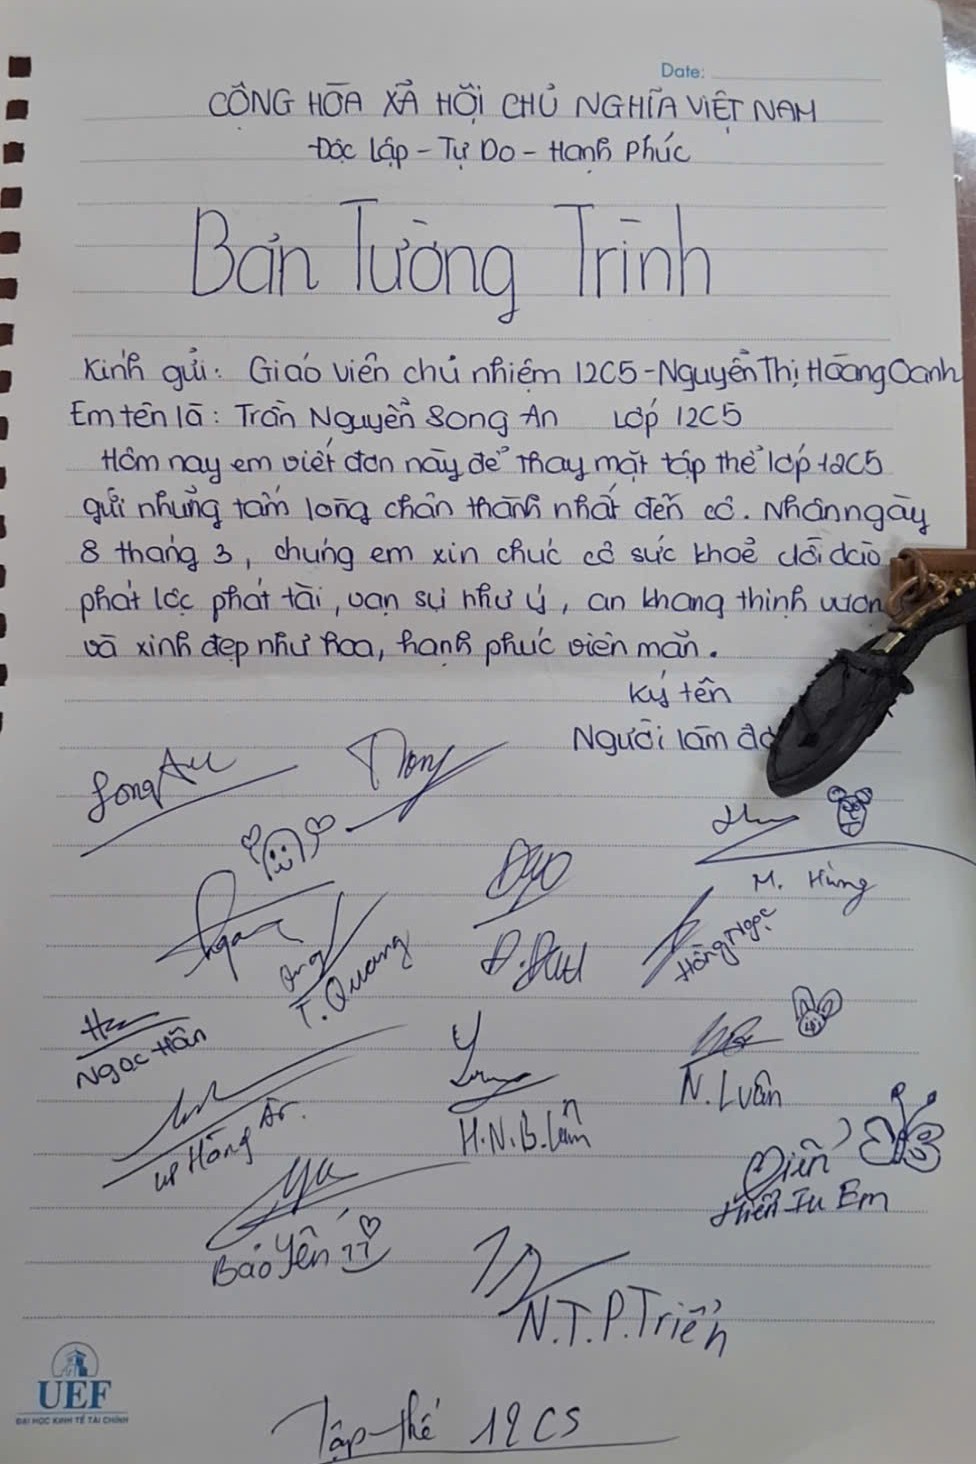 Date:
CỘNG HÒA XÃ HỘI CHỦ NGHĨA VIỆT NAM
Độc Lập - Tự Do - Hạnh Phúc
Bản Tường Trình
Kính gửi: Giáo viên chủ nhiệm 12C5 - Nguyễn Thị Hoàng Oanh
Em tên là: Trần Nguyễn Song An Lớp 12C5
Hôm nay em viết đơn này để thay mặt tập thể lớp 12C5
gửi những tấm lòng chân thành nhất đến cô. Nhân ngày
8 tháng 3, chúng em xin chúc cô sức khoẻ dồi dào
phát lộc phát tài, vạn sự như ý, an khang thịnh vượn
và xinh đẹp như hoa, hạnh phúc viên mãn.
Ký tên
Người làm đơ
Song An
M. Hùng
Hồng Ngọc
T. Quang
Đ. Đạt
Ngọc Hân
N. Luân
H.N.B. Lâm
Bảo Yên
N.T.P. Triển
UEF
ĐẠI HỌC KINH TẾ TÀI CHÍNH
Tập thể 12C5